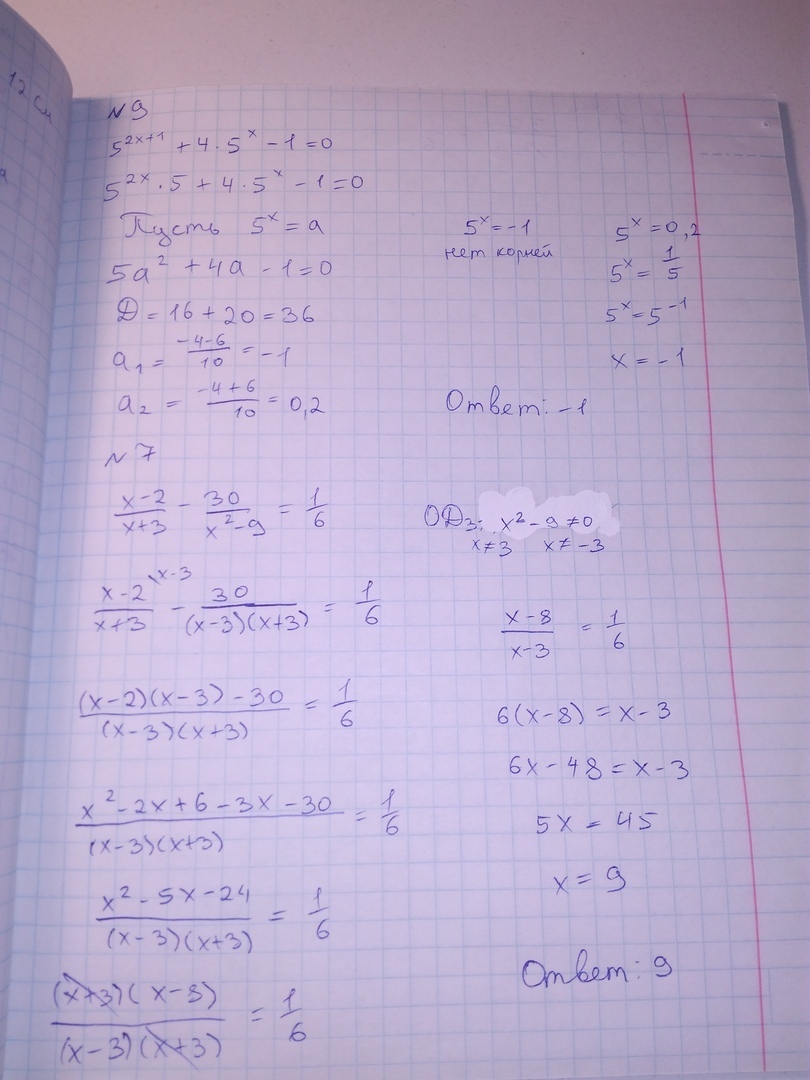 12 см
№9
5^{2x+1} + 4 · 5^x − 1 = 0
5^{2x} · 5 + 4 · 5^x − 1 = 0
Пусть 5^x = a
5a^2 + 4a − 1 = 0
D = 16 + 20 = 36
a_1 = \frac{−4−6}{10} = −1
a_2 = \frac{−4+6}{10} = 0,2
5^x = −1
нет корней
5^x = 0,2
5^x = \frac{1}{5}
5^x = 5^{−1}
x = −1
Ответ: −1
№7
\frac{x−2}{x+3} − \frac{30}{x^2−9} = \frac{1}{6}
\frac{x−2}{x+3}^{\x−3} − \frac{30}{(x−3)(x+3)} = \frac{1}{6}
\frac{(x−2)(x−3)−30}{(x−3)(x+3)} = \frac{1}{6}
\frac{x^2−2x+6−3x−30}{(x−3)(x+3)} = \frac{1}{6}
\frac{x^2−5x−24}{(x−3)(x+3)} = \frac{1}{6}
\frac{(x+3)(x−8)}{(x−3)(x+3)} = \frac{1}{6}
ОДЗ: x^2 − 9 ≠ 0
x ≠ 3 x ≠ −3
\frac{x−8}{x−3} = \frac{1}{6}
6(x−8) = x−3
6x − 48 = x − 3
5x = 45
x = 9
Ответ: 9